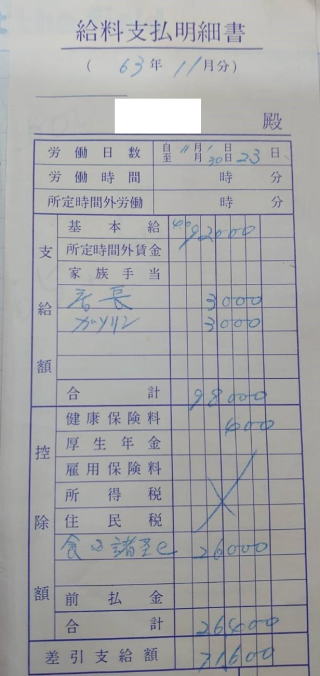 給料支払明細書
( 63年 11月分)
殿
労働日数 自 11月 1日 至 月 30日 23日
労働時間 時 分
所定時間外労働 時 分
支給額
基本給 92000
所定時間外賃金
家族手当
店長 3000
ガソリン 3000
合計 98000
控除額
健康保険料 400
厚生年金
雇用保険料
所得税
住民税
26000
前払金
合計 26400
差引支給額 71600